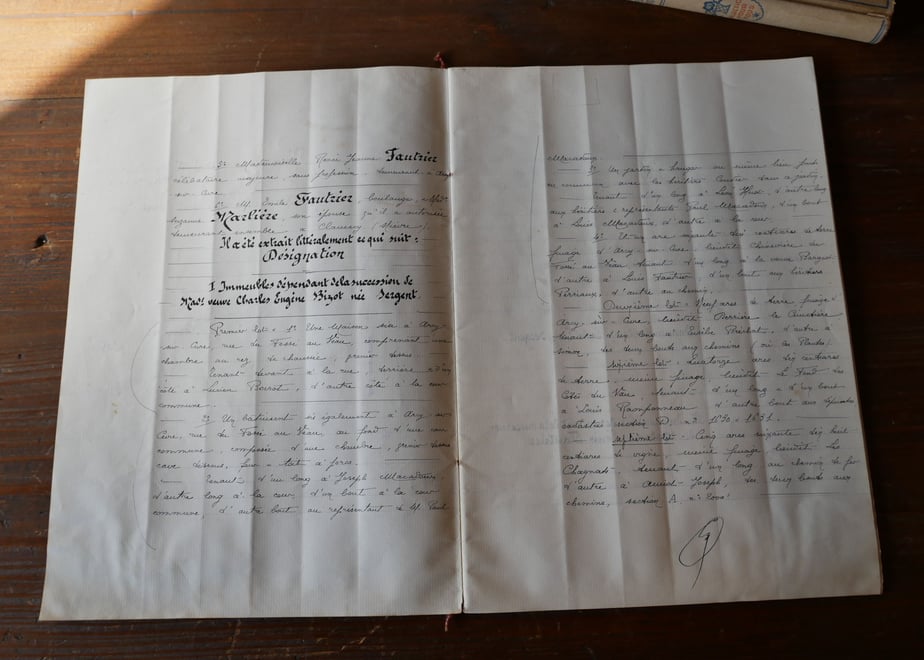 5° Mademoiselle René Jeanne Fautrier
célibataire majeure, sans profession demeurant à Arcy
sur-Cure
6° M. Emile Fautrier, boulanger, & Mad.
Suzanne Marlière, son épouse qu'il a autorisée
demeurant ensemble à (Nièvre).
Il a été extrait littéralement ce qui suit:
Désignation
I. Immeubles dépendant de la succession de
Made veuve Charles Eugène Bizot née Sergent.
Premier lot = 1° Une Maison sise à Arcy-
sur-Cure, rue du Fossé au Veau, comprenant une
chambre au rez de chaussée, grenier dessus.
Tenant devant à la rue, derrière & d'un
côté à Lucien Poirot, d'autre côté à la cour
commune.
2° Un bâtiment sis également à Arcy-sur-
Cure, rue du Fossé au Veau, au fond d'une cour
commune, composée d'une chambre, grenier dessus
cave dessous, four & toit à porcs.
Tenant d'un long à Joseph
d'autre long à la cour, d'un bout à la cour
commune, d'autre bout au représentant de M. Paul
3° Un jardin à même lieu
en commun avec les héritiers
Tenant d'un long à Léon d'autre long
aux héritiers & représentants d'un bout
à Louis d'autre à la cour
4° Un are soixante dix centiares de terre
finage d'Arcy-sur-Cure, lieudit Chènevière du
Fossé au Veau, tenant d'un long à la veuve
d'autre à Louis Fautrier, d'un bout aux héritiers
Perreaux, d'autre au chemin.
Deuxième lot = Neuf ares de terre, finage d'
Arcy-sur-Cure, lieudit Derrière le Cimetière
tenant d'un long à Emile d'autre à
des deux bouts aux chemins
Sixième lot = Quatorze ares dix centiares
de terre, même finage, lieudit Le Fond des
Côtes du Vau, tenant d'un long & d'un bout
à Louis Ramponneau, d'autre bout aux
cadastrés section D, n° 1630 & 1631.
Septième lot = Cinq ares soixante dix huit
centiares de vigne, même finage, lieudit Les
Chagnats, tenant d'un long au chemin de fer
d'autre à Joseph, des deux bouts aux
chemins, section A, n°